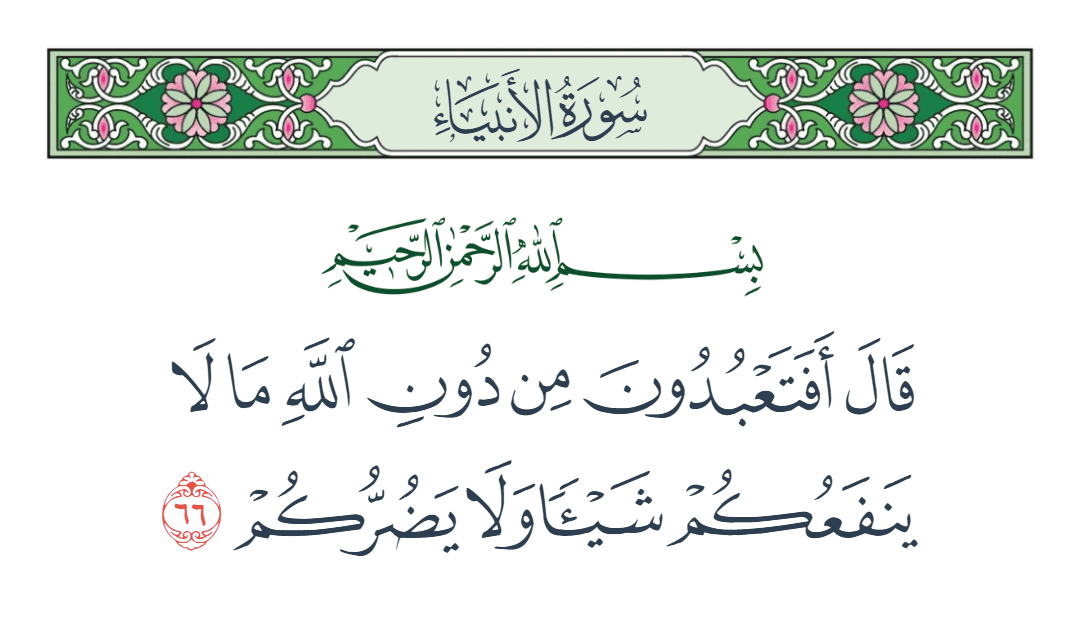 سُورَةُ الأَنبِيَاءِ
بِسْمِ ٱللَّهِ ٱلرَّحْمَٰنِ ٱلرَّحِيمِ
قَالَ أَفَتَعْبُدُونَ مِن دُونِ ٱللَّهِ مَا لَا
يَنفَعُكُمْ شَيْـًٔا وَلَا يَضُرُّكُمْ ٦٦